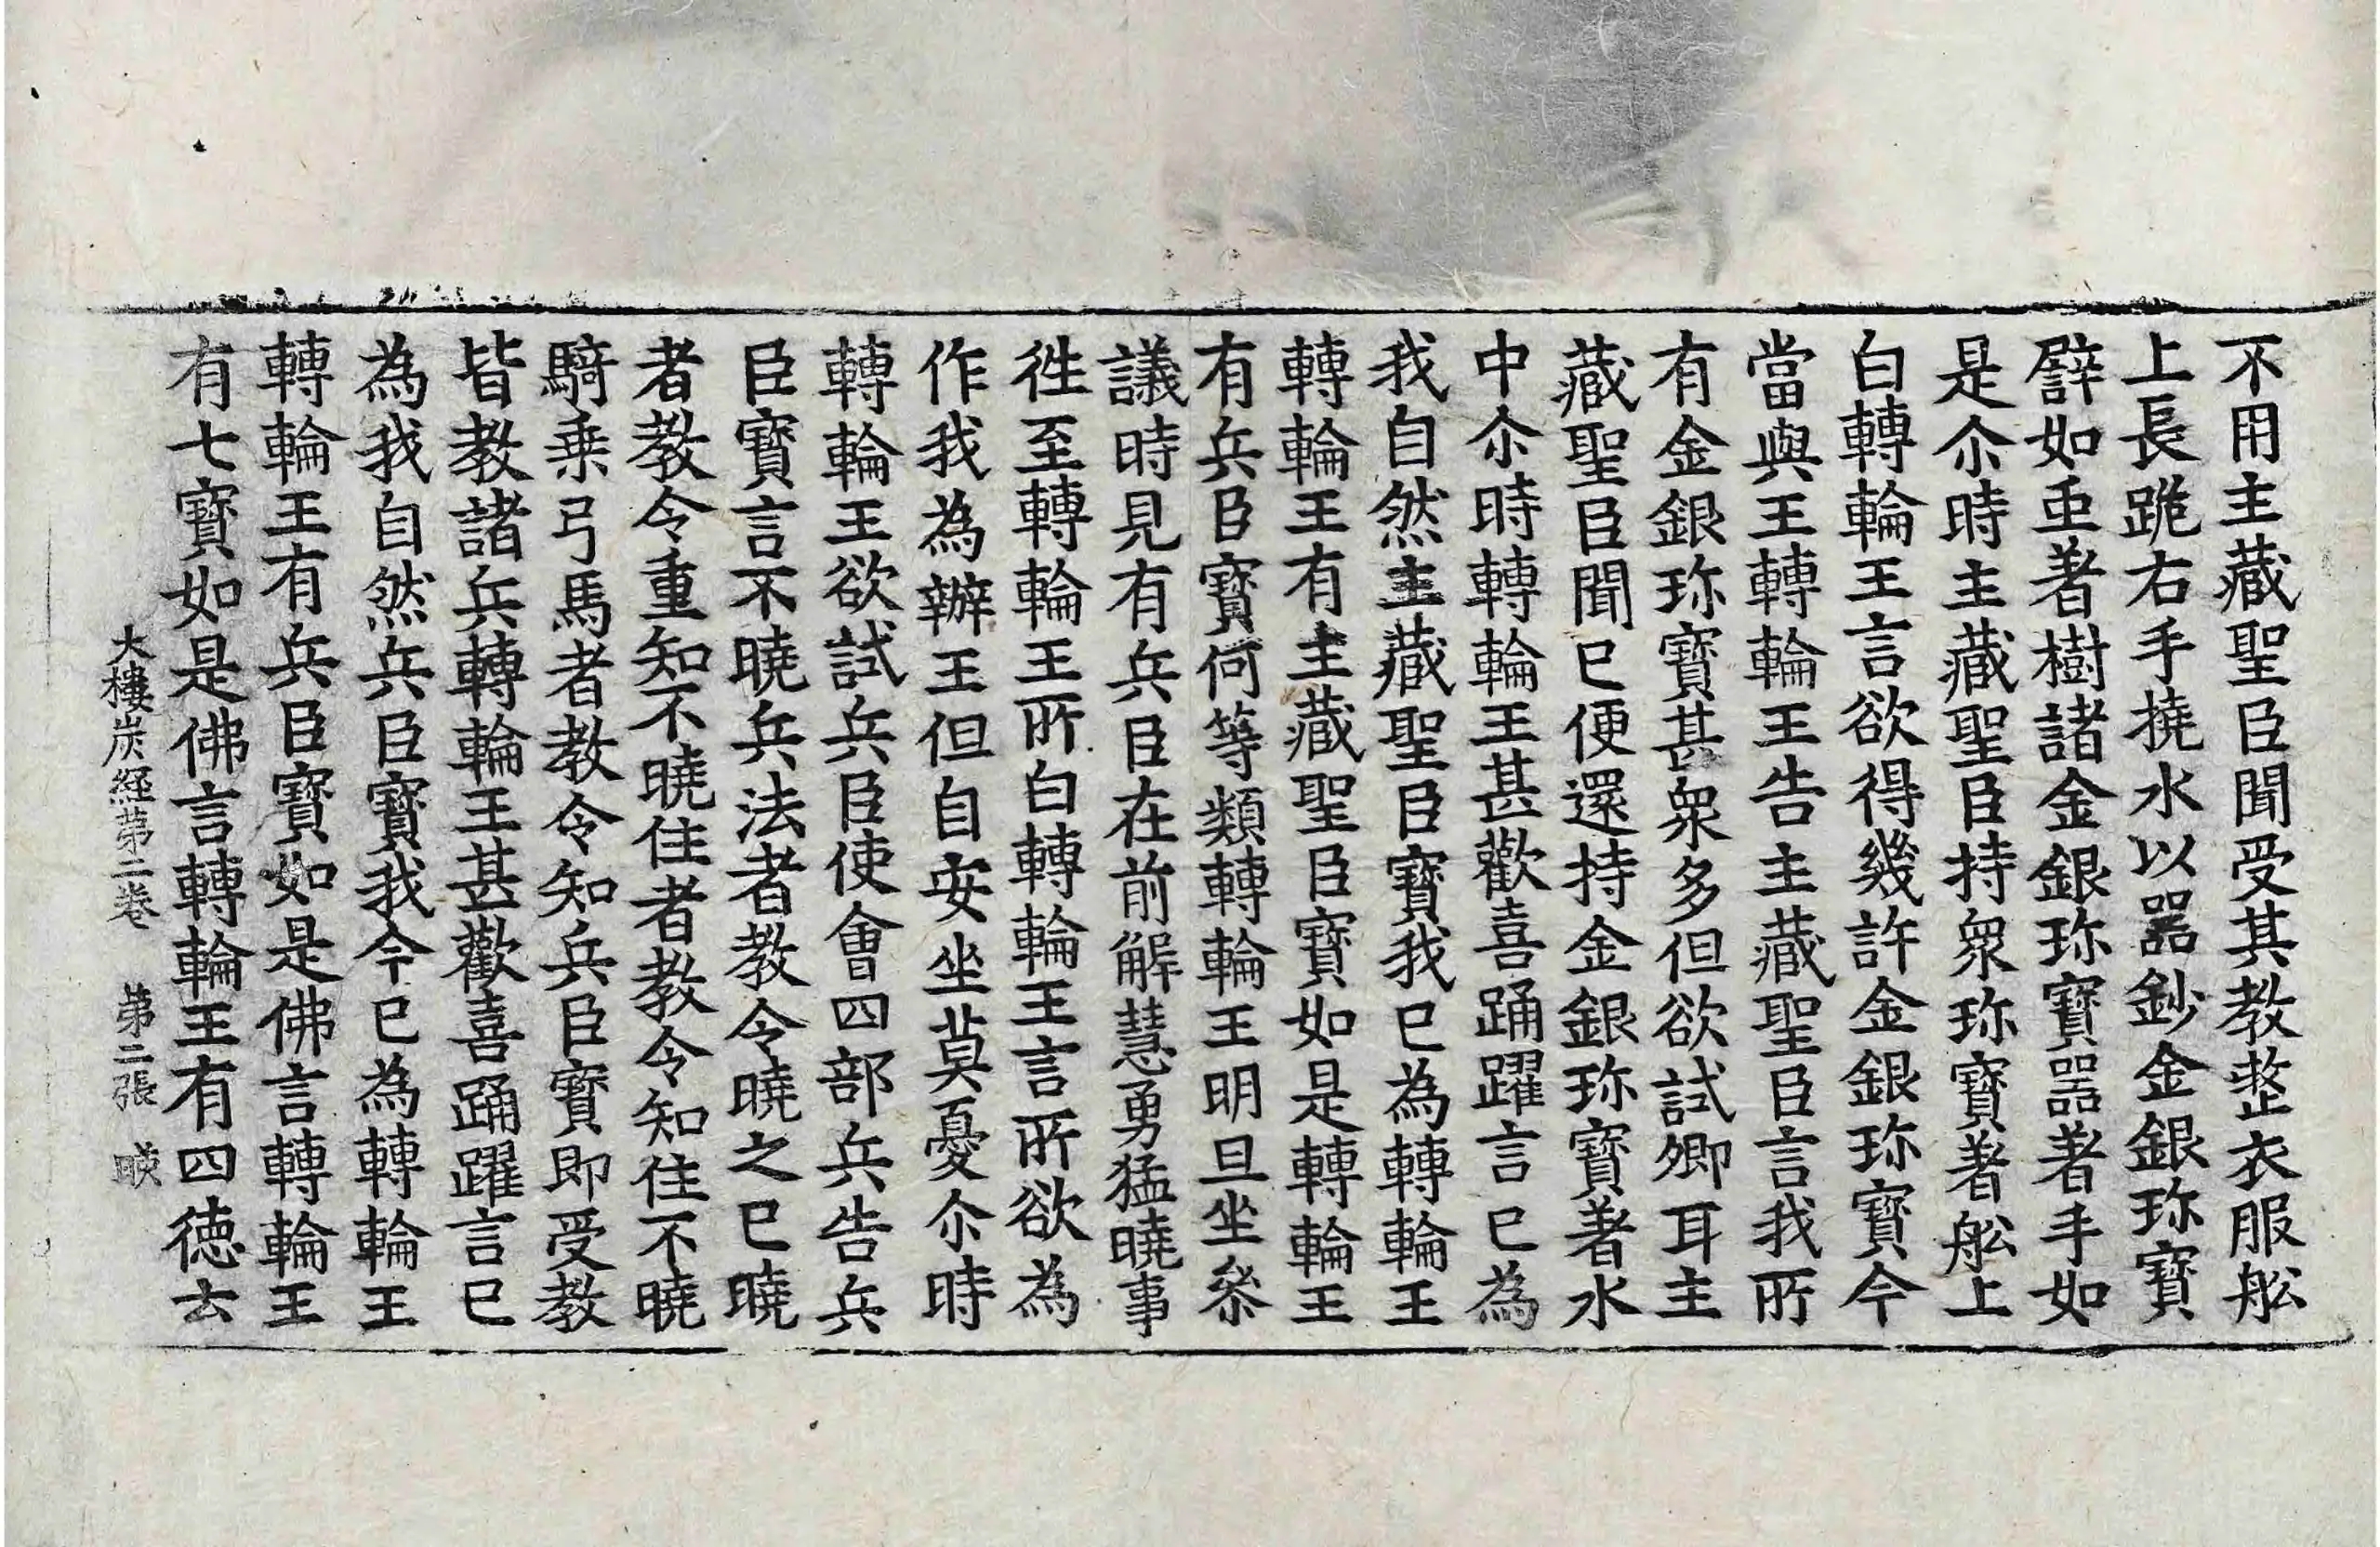 不用主藏聖臣聞受其教整衣服舩
上長跪右手撓水以器鈔金銀珎寶
譬如䖝著樹諸金銀珎寶器著手如
是尒時主藏聖臣持衆珎寶著舩上
白轉輪王言欲得幾許金銀珎寶今
當與王轉輪王告主藏聖臣言我所
有金銀珎寶甚衆多但欲試卿耳主
藏聖臣聞已便還持金銀珎寶著水
中尒時轉輪王甚歡喜踊躍言已為
我自然主藏聖臣寶我已為轉輪王
轉輪王有主藏聖臣寶如是轉輪王
有兵臣寶何等類轉輪王明旦坐叅
議時見有兵臣在前解慧勇猛曉事
徃至轉輪王所白轉輪王言所欲為
作我為辦王但自安坐莫憂尒時
轉輪王欲試兵臣使會四部兵告兵
臣寶言不曉兵法者教令曉之已曉
者教令重知不曉住者教令知住不曉
騎乗弓馬者教令知兵臣寶即受教
皆教諸兵轉輪王甚歡喜踊躍言已
為我自然兵臣寶我今已為轉輪王
轉輪王有兵臣寶如是佛言轉輪王
有七寶如是佛言轉輪王有四徳去
大樓炭經第二卷 第二張